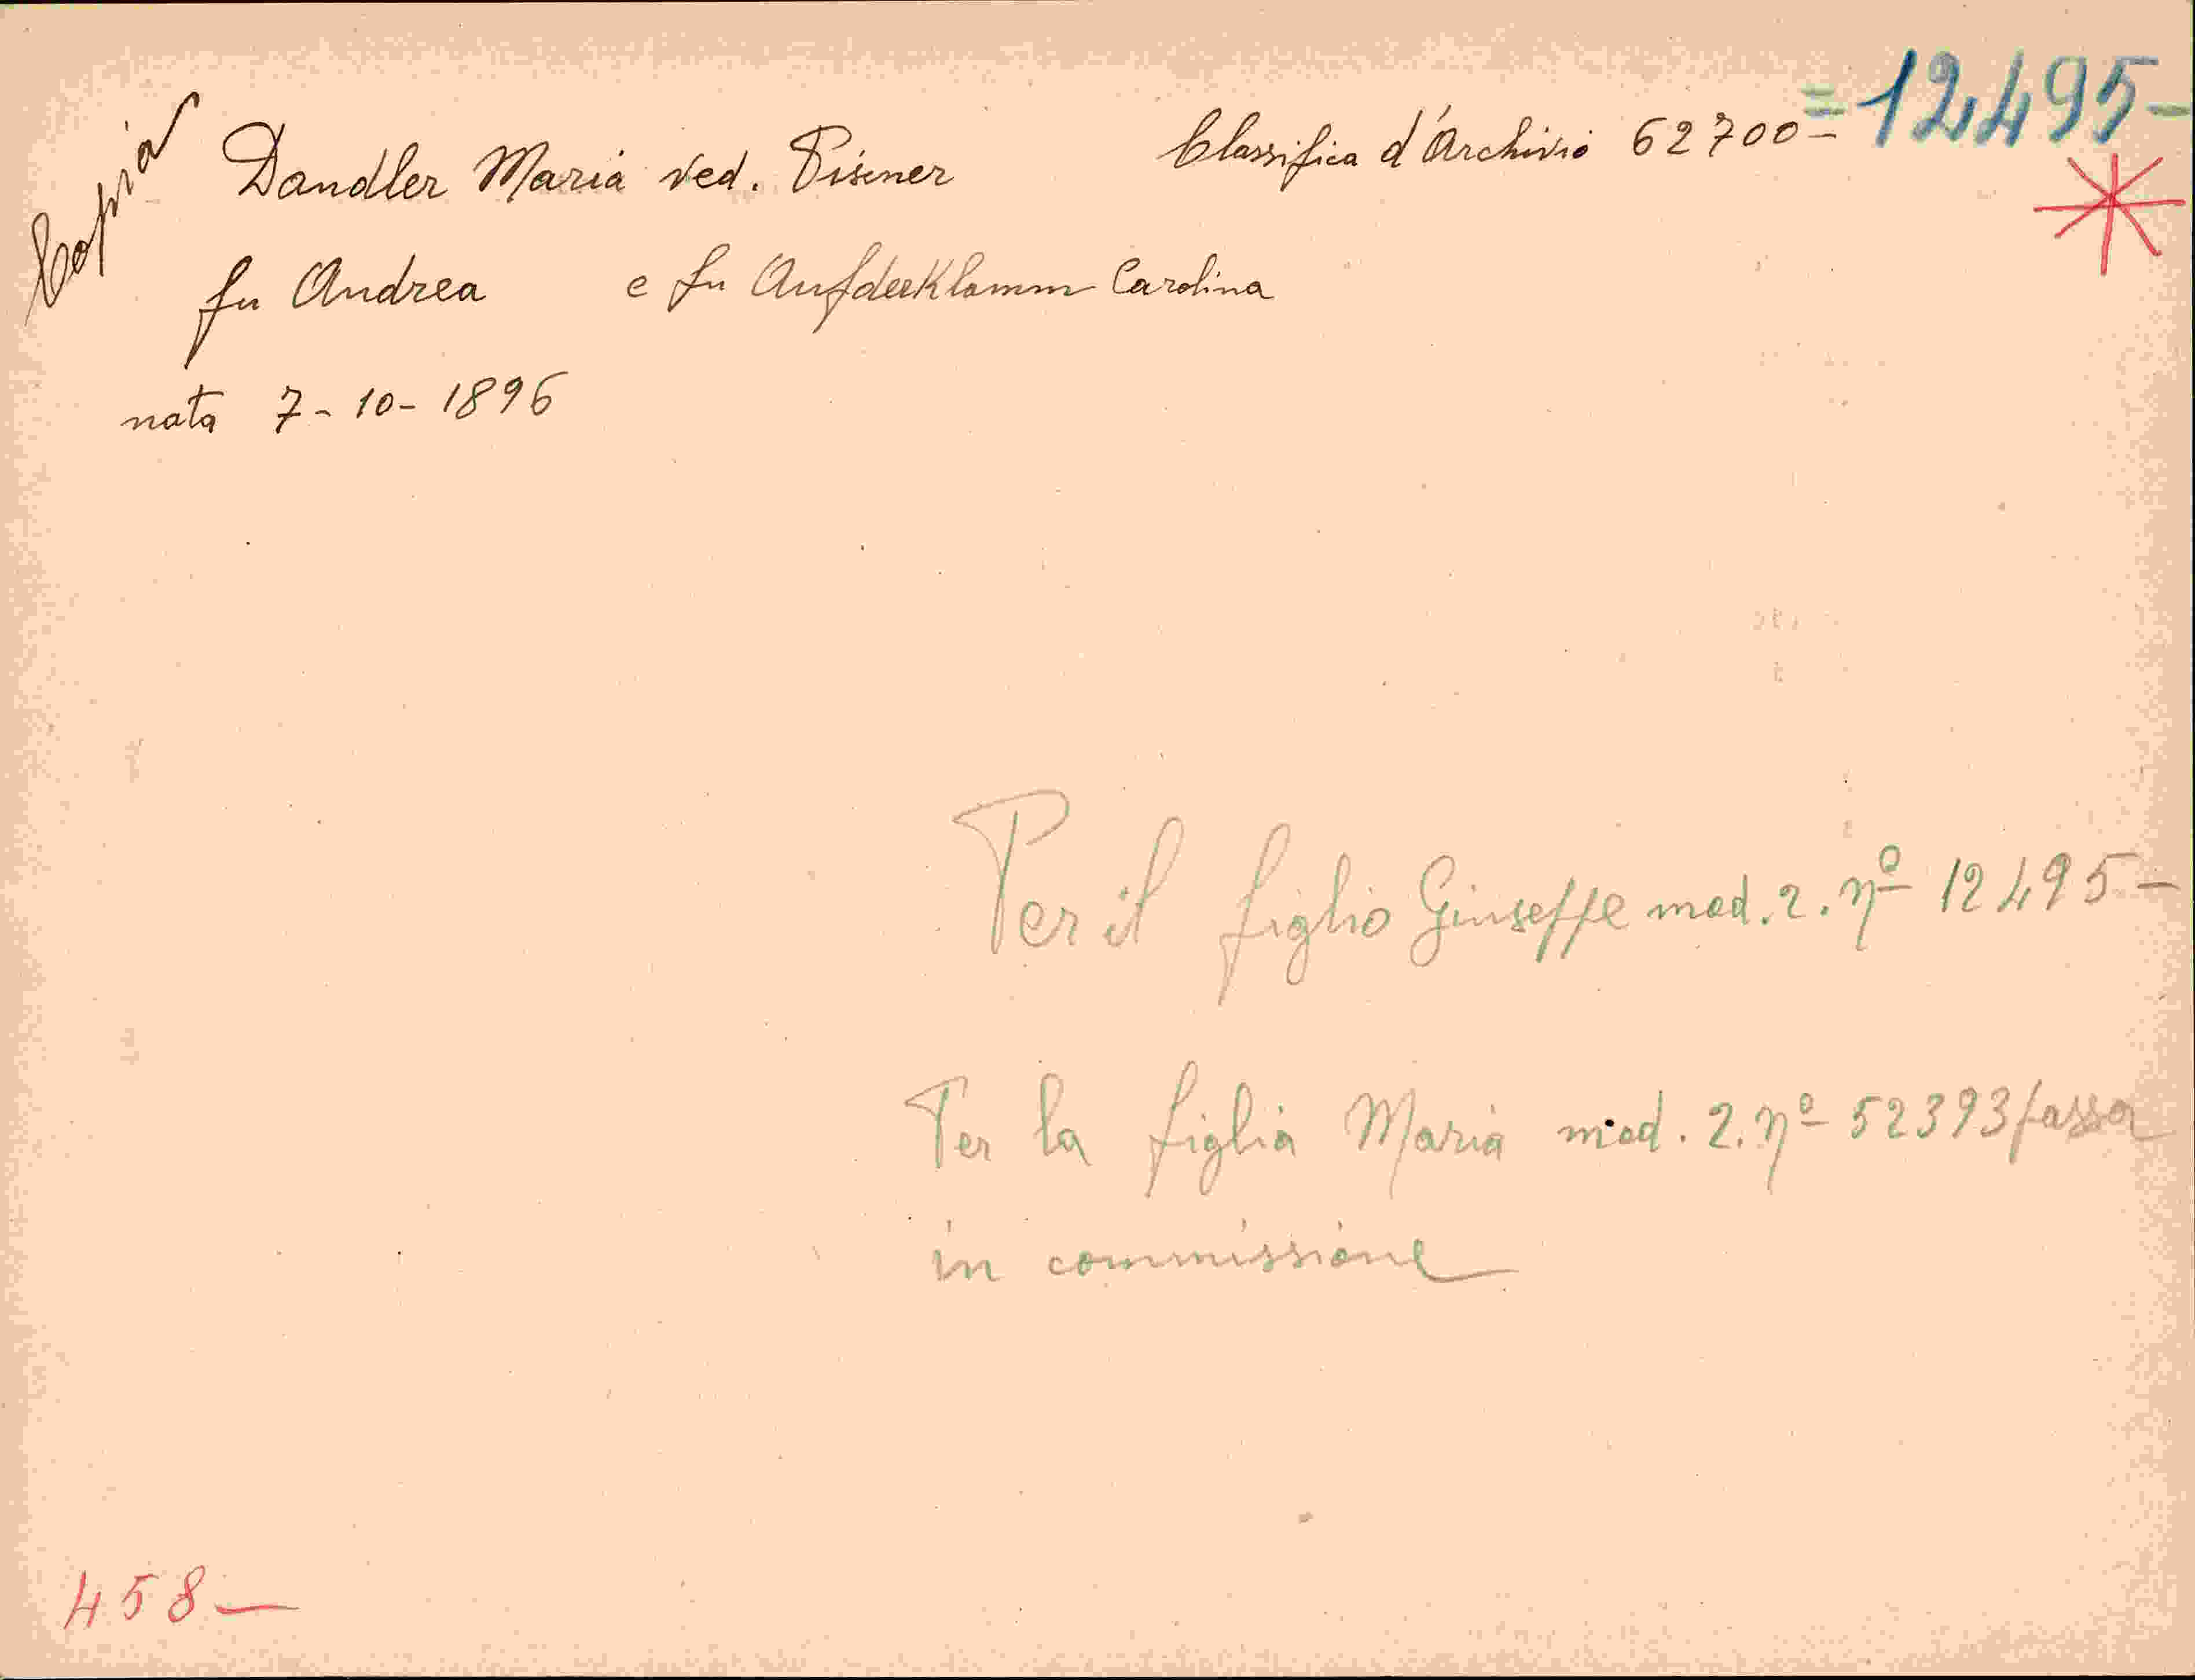 Copia
Dandler Maria ved. Pisener
Classifica d'Archivio 62700 = 12495-
fu Andrea e fu Aufderklamm Carolina
nata 7-10-1896
Per il figlio Giuseppe mod. 2. nº 12495-
Per la figlia Maria mod. 2. nº 52393 passa
in commissione
458-